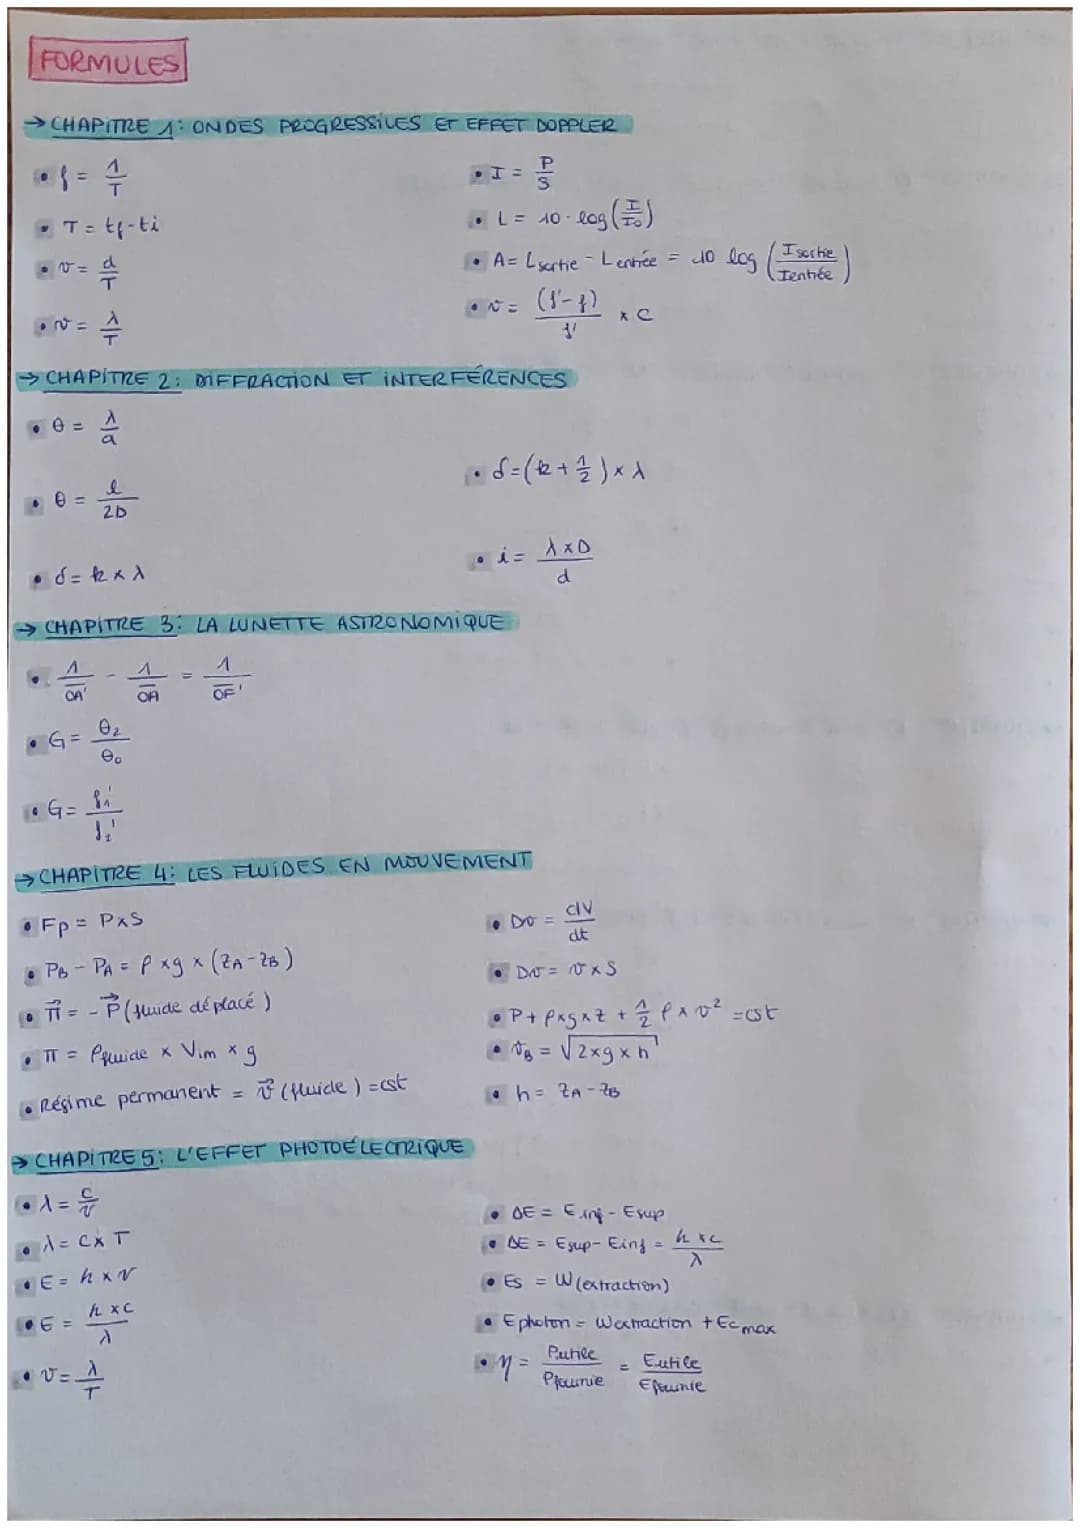 FORMULES
→ CHAPITRE 1: ONDES PROGRESSIVES ET EFFET DOPPLER
• f = 1/T
• T = tf - ti
• v = d/T
• v = λ/T
• I = P/S
• L = 10 · log(I/I₀)
• A = L sortie - L entrée = 10 log (I sortie / I entrée)
• v = (f'-f)/f' × C
→ CHAPITRE 2: DIFFRACTION ET INTERFÉRENCES
• θ = λ/a
• θ = l/2D
• δ = k × λ
• δ = (k + 1/2) × λ
• i = λ×D/d
→ CHAPITRE 3: LA LUNETTE ASTRONOMIQUE
• 1/OA' - 1/OA = 1/OF'
• G = θ₂/θ₀
• G = f₁'/f₂'
→ CHAPITRE 4: LES FLUIDES EN MOUVEMENT
• Fp = P×S
• PB - PA = ρ × g × (ZA - ZB)
• π⃗ = - P⃗ (fluide déplacé)
• π = ρfluide × Vim × g
• Régime permanent = v⃗ (fluide) = cst
• Dv = dV/dt
• Dv = v × S
• P + ρ×g×z + 1/2 ρ × v² = cst
• vB = √2×g×h
• h = ZA - ZB
→ CHAPITRE 5: L'EFFET PHOTOÉLECTRIQUE
• λ = c/ν
• λ = C × T
• E = h × ν
• E = h×c/λ
• v = λ/T
• ΔE = Einf - Esup
• ΔE = Esup - Einf = h×c/λ
• Es = W(extraction)
• Ephoton = Wextraction + Ec max
• η = Putile/Pfournie = Eutile/Efournie